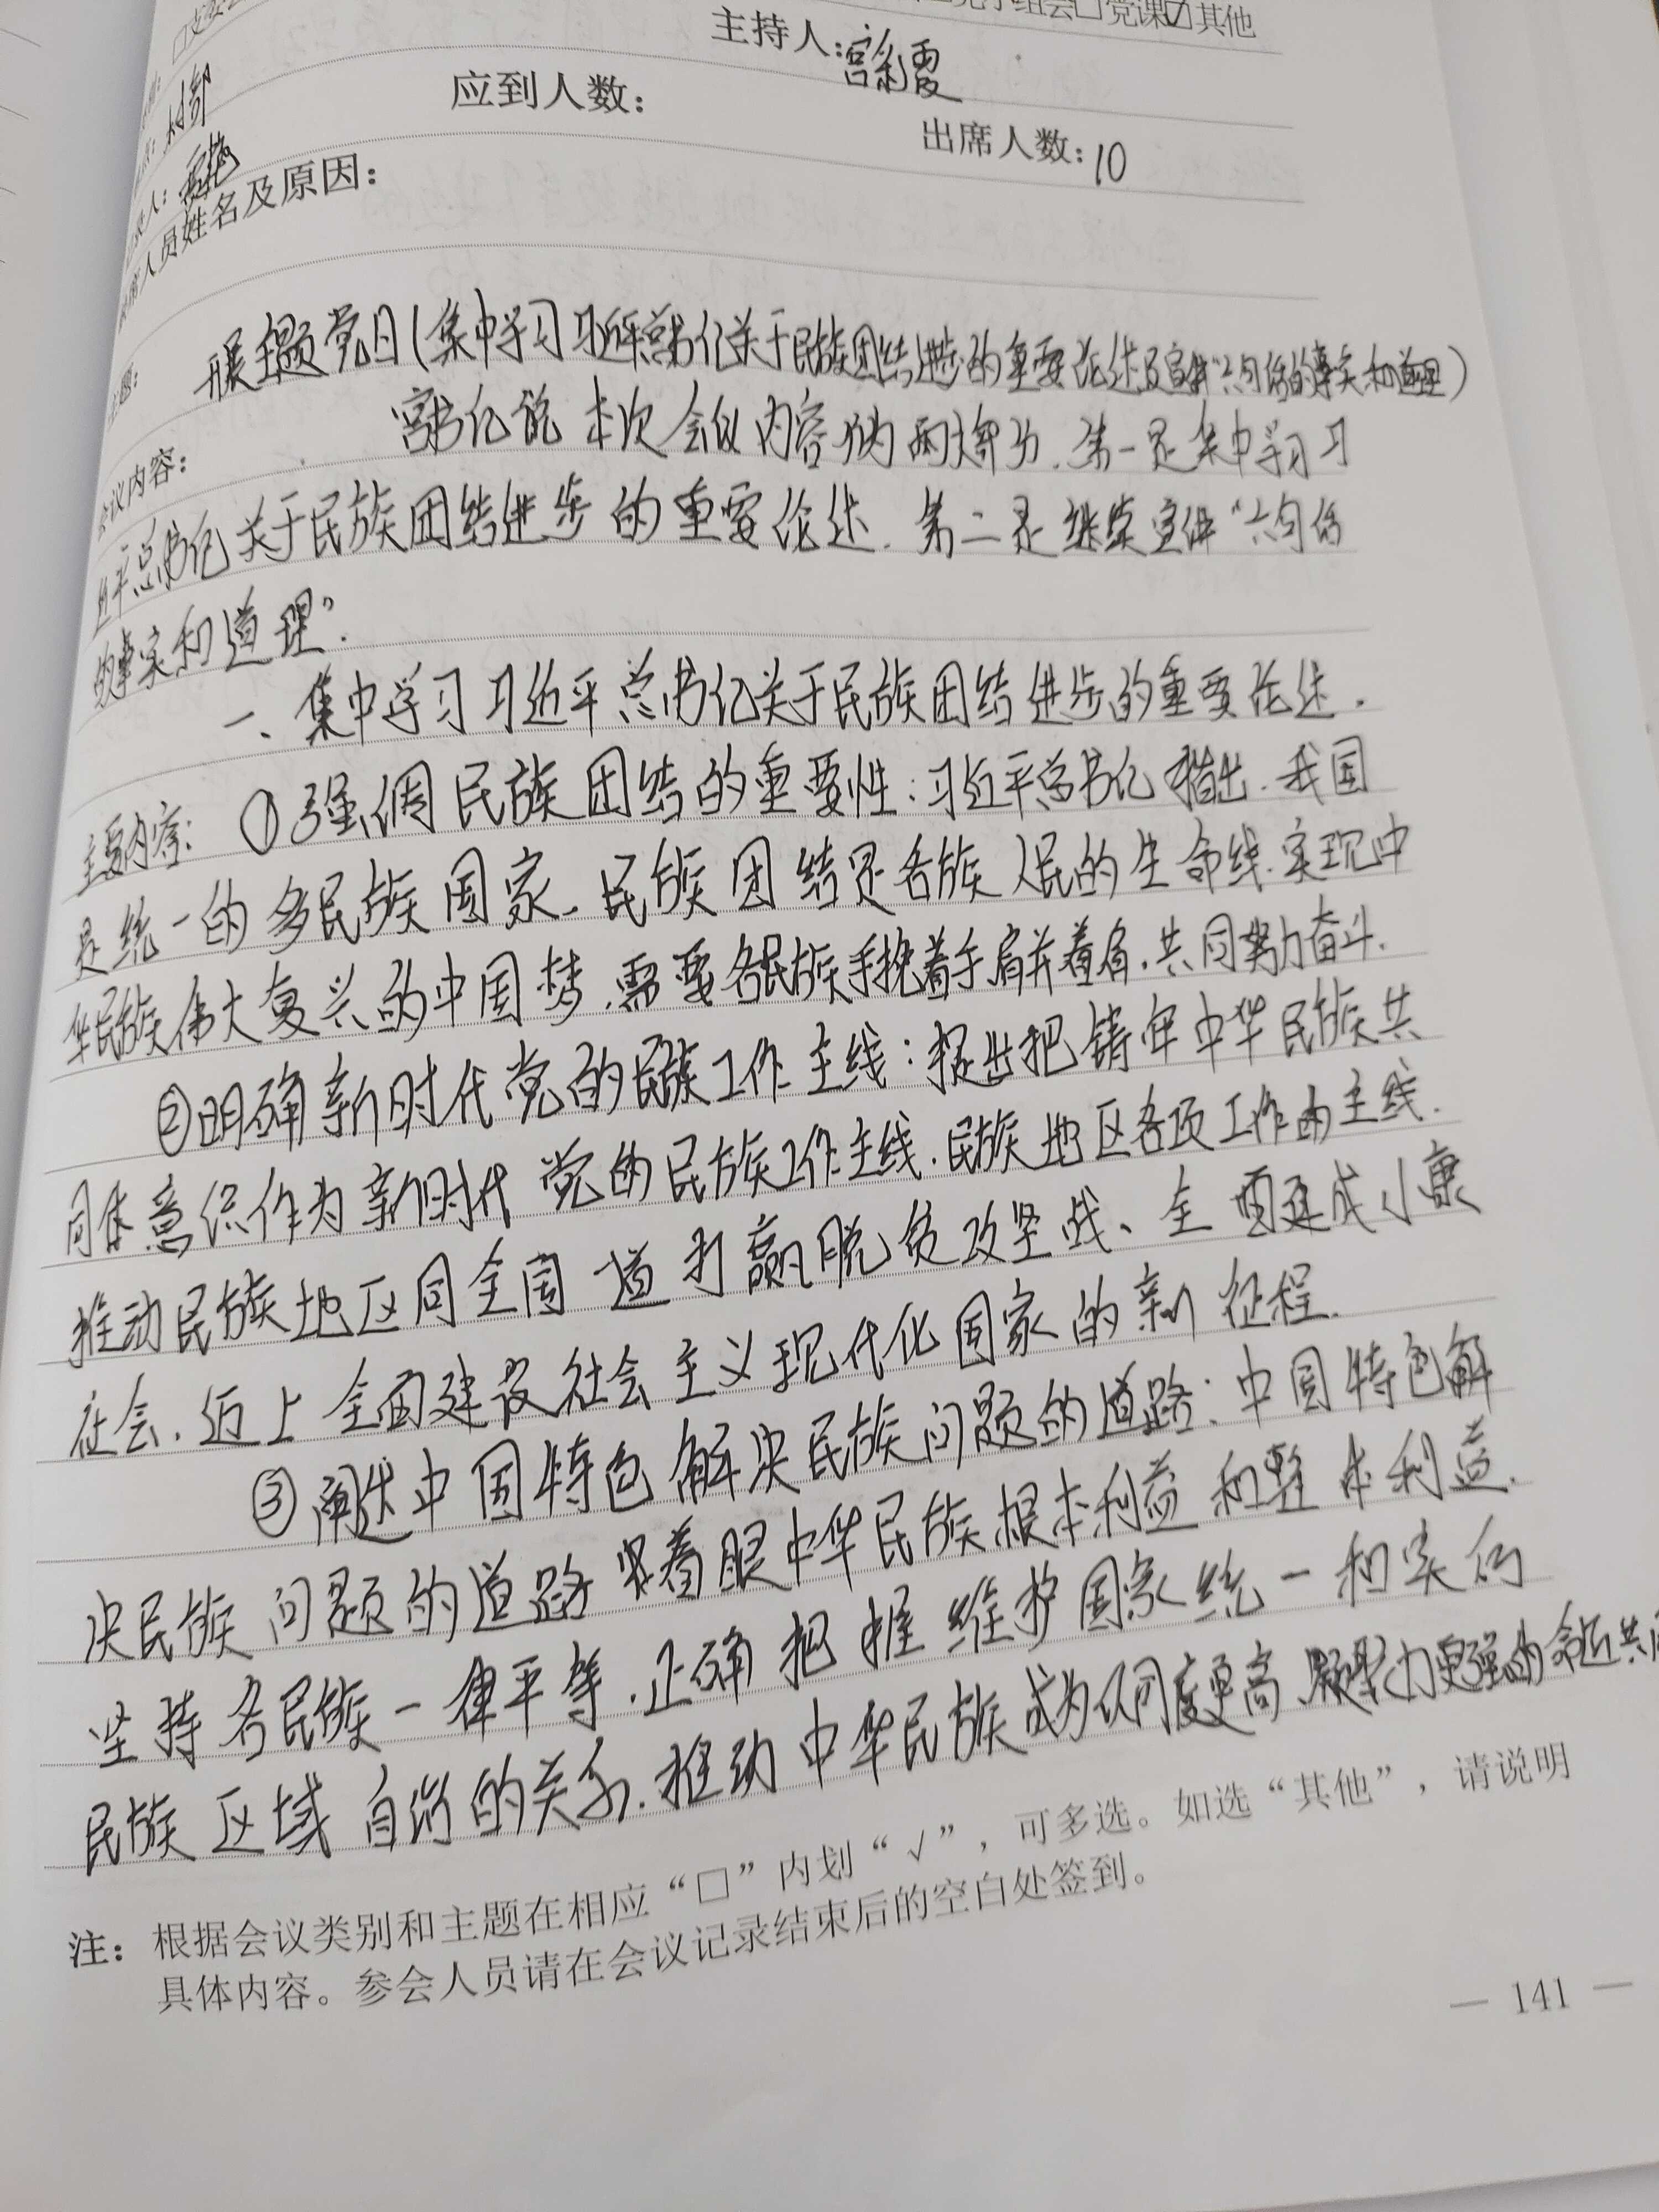 党小组会□党课☑其他
主持人:宫利霞
应到人数:
出席人数:10
人员姓名及原因:
开展主题党日(集中学习习近平总书记关于民族团结进步的重要论述及宣传“六句话的事实和道理)
会议内容: 宫书记说本次会议内容分为两大部分.第一是集中学习习
近平总书记关于民族团结进步的重要论述.第二是继续宣传“六句话
的事实和道理”.
一、集中学习习近平总书记关于民族团结进步的重要论述.
主要内容: ①强调民族团结的重要性:习近平总书记指出.我国
是统一的多民族国家.民族团结是各族人民的生命线.实现中
华民族伟大复兴的中国梦.需要各民族手挽着手肩并着肩.共同努力奋斗.
②明确新时代党的民族工作主线:提出把铸牢中华民族共
同体意识作为新时代党的民族工作主线.民族地区各项工作的主线.
推动民族地区同全国一道打赢脱贫攻坚战、全面建成小康
社会.迈上全面建设社会主义现代化国家的新征程.
③阐述中国特色解决民族问题的道路:中国特色解
决民族问题的道路 着眼中华民族根本利益和整体利益.
坚持各民族一律平等.正确把握维护国家统一和实行
民族区域自治的关系.推动中华民族成为认同度更高、凝聚力更强的命运共同
注: 根据会议类别和主题在相应“□”内划“√”,可多选。如选“其他”,请说明
具体内容。参会人员请在会议记录结束后的空白处签到。
— 141 —